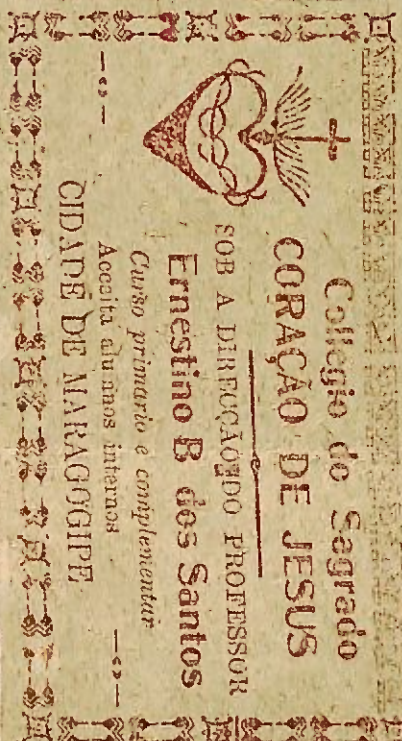 Collegio do Sagrado
CORAÇÃO DE JESUS
SOB A DIRECÇÃO DO PROFESSOR
Ernestino B dos Santos
Curso primario e complementar
Acceita alumnos internos
CIDADE DE MARAGOGIPE